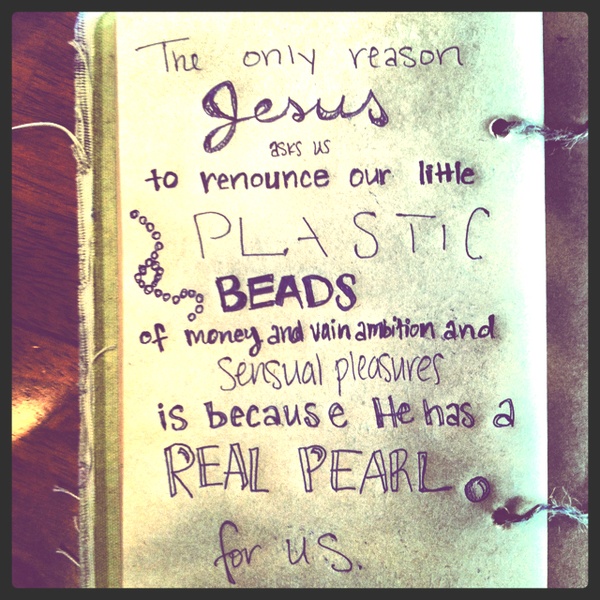 The only reason
Jesus
asks us
to renounce our little
PLASTIC
BEADS
of money and vain ambition and
sensual pleasures
is because He has a
REAL PEARL
for us.